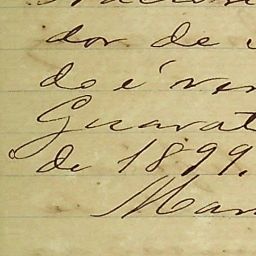 dor de
do é ver
Guarat
de 1899.
Man